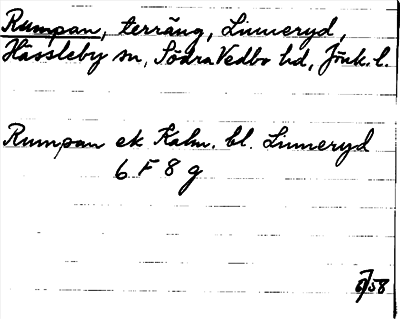 Rumpan, terräng, Linneryd,
Hässleby sn, Södra Vedbo hd, Jönk. l.
Rumpan ek Kalm. bl. Linneryd
6 F 8 g
58